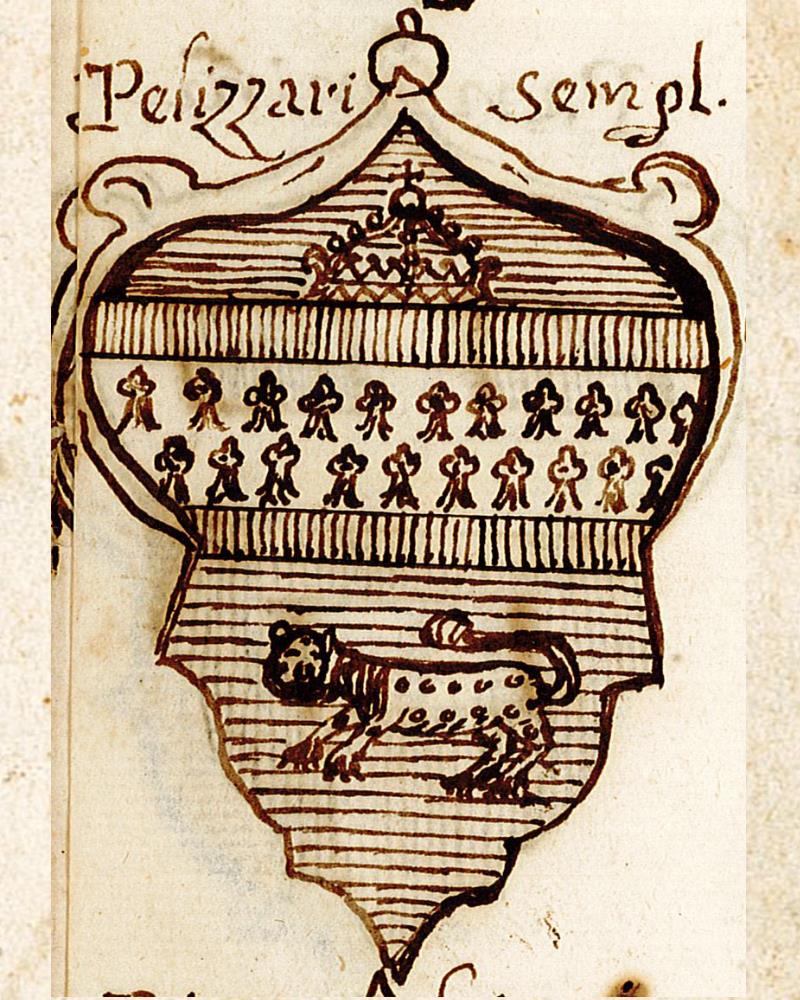 Pelizzari sempl.